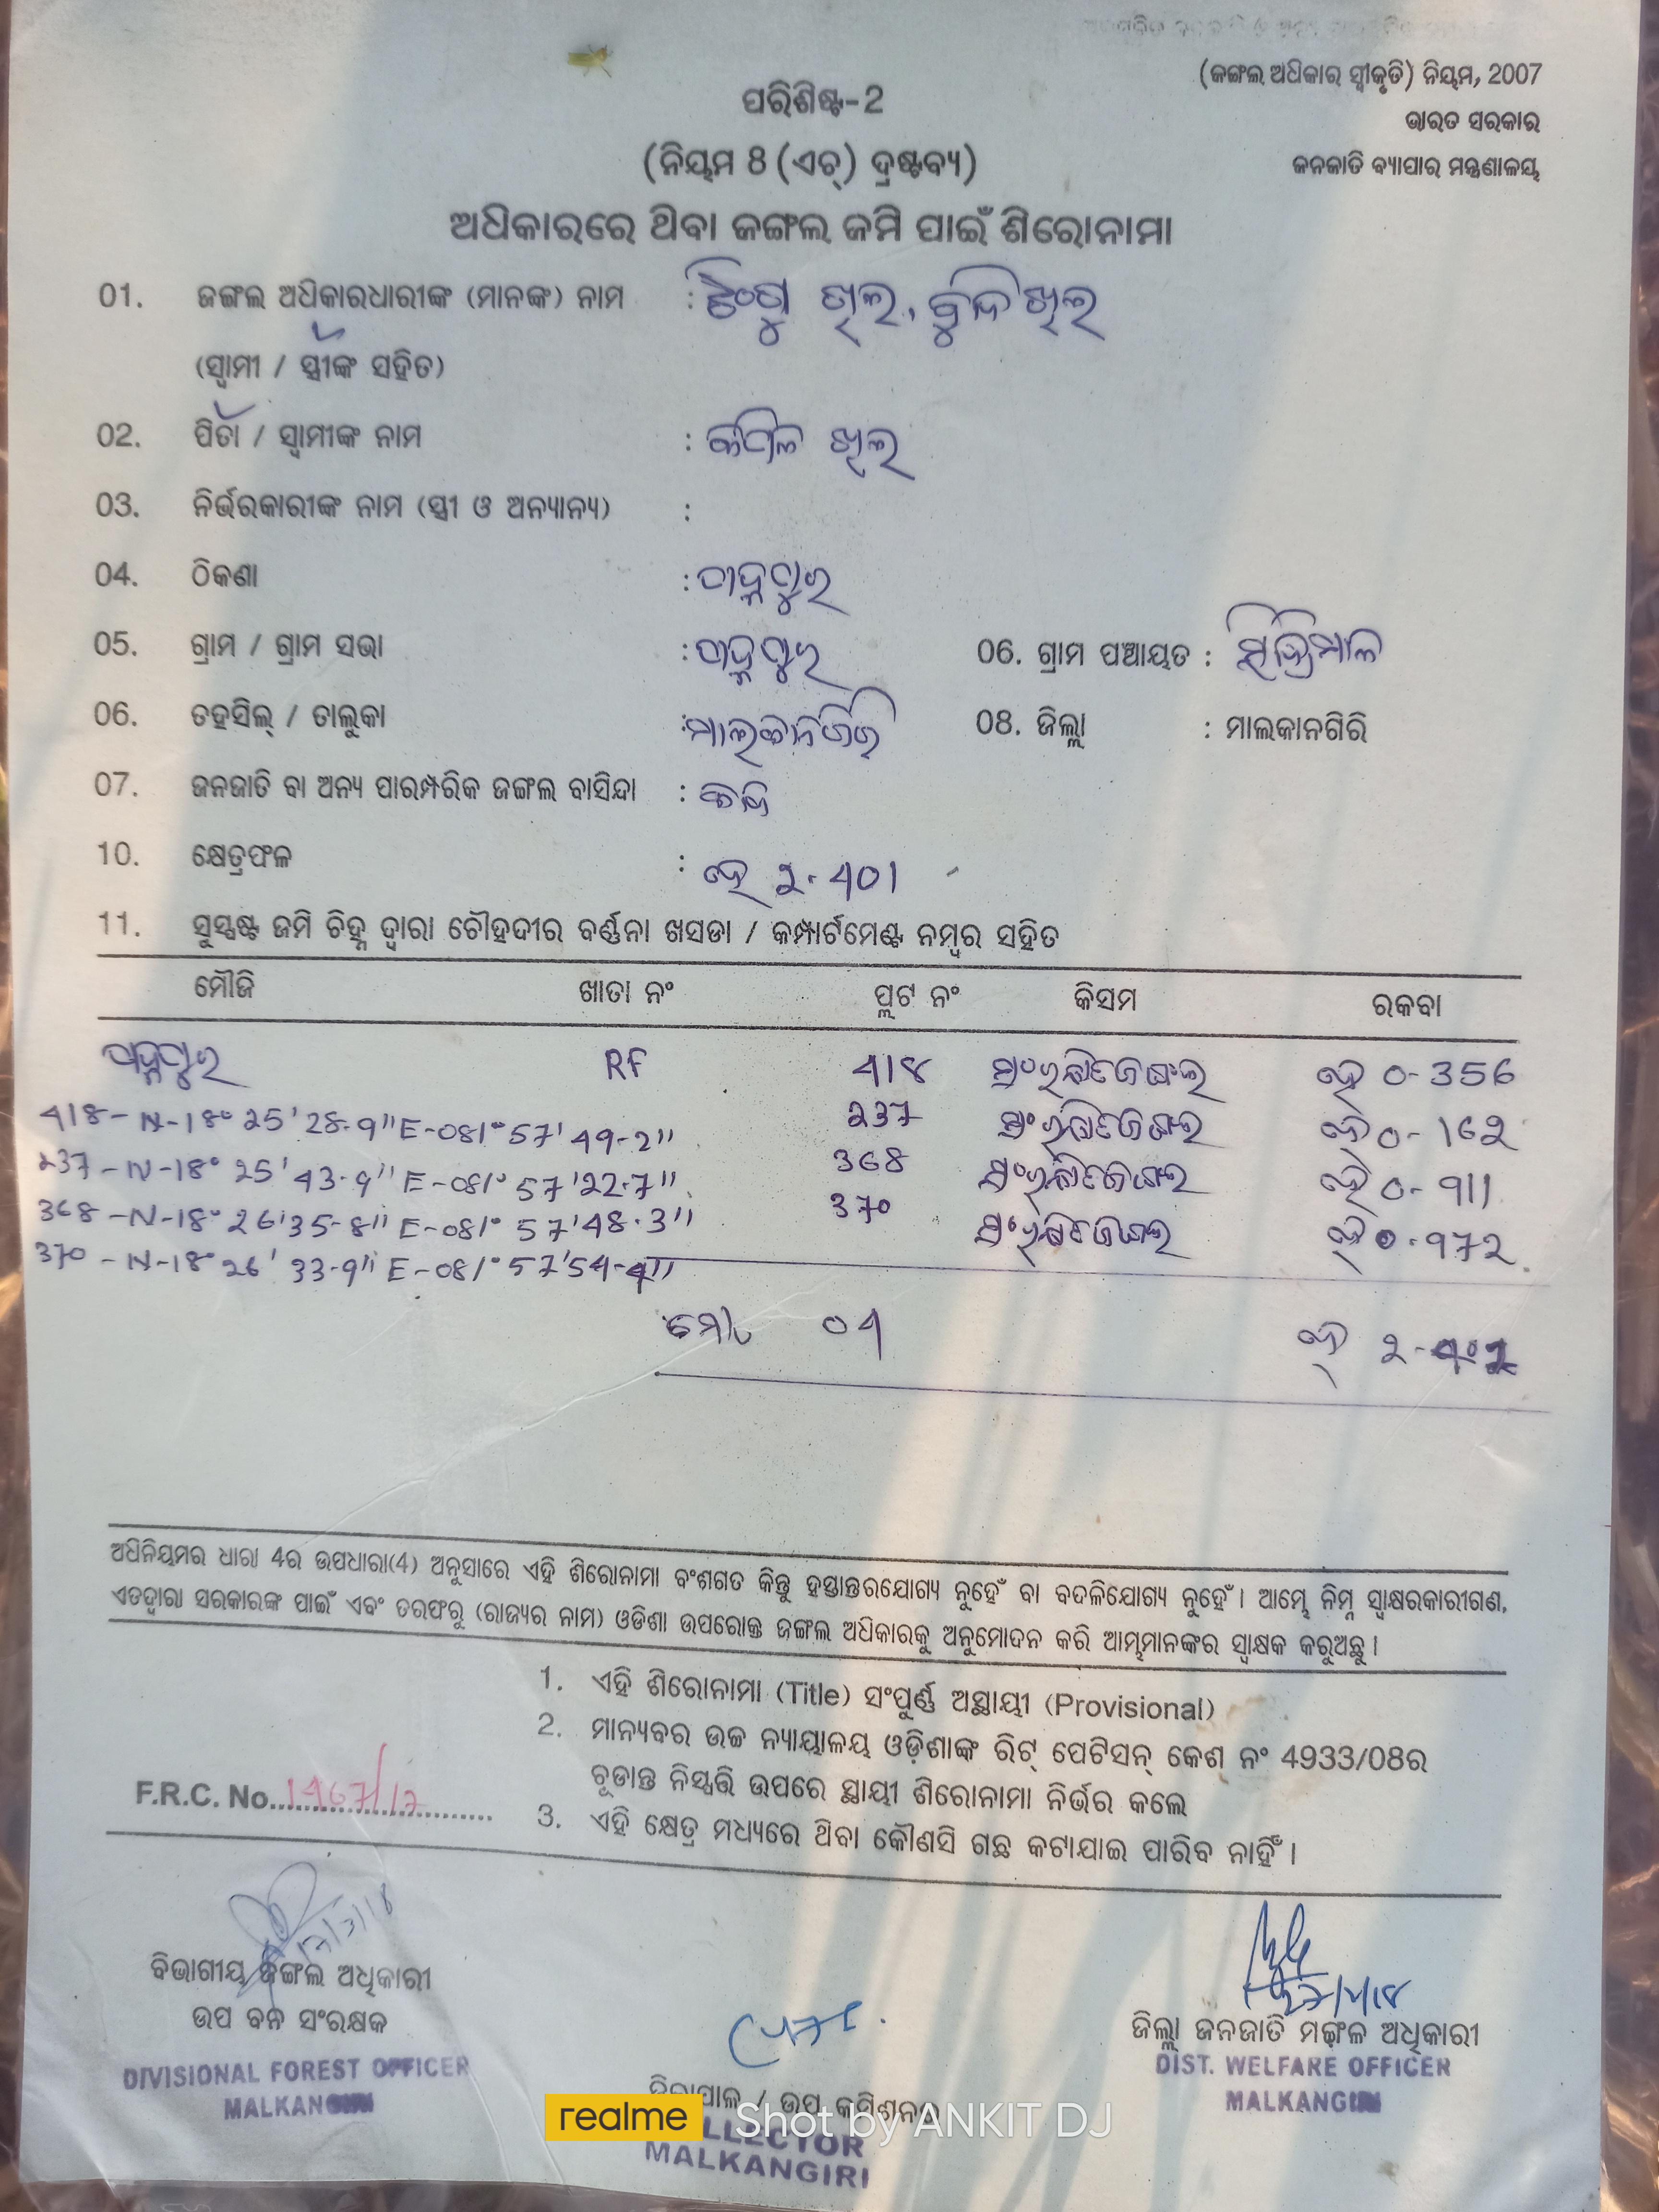 (ଜଙ୍ଗଲ ଅଧିକାର ସ୍ୱୀକୃତି) ନିୟମ, 2007
ପରିଶିଷ୍ଟ-2
ଭାରତ ସରକାର
(ନିୟମ 8 (ଏଚ୍) ଦ୍ରଷ୍ଟବ୍ୟ)
ଜନଜାତି ବ୍ୟାପାର ମନ୍ତ୍ରଣାଳୟ
ଅଧିକାରରେ ଥିବା ଜଙ୍ଗଲ ଜମି ପାଇଁ ଶିରୋନାମା
01. ଜଙ୍ଗଲ ଅଧିକାରଧାରୀଙ୍କ (ମାନଙ୍କ) ନାମ : ଖିଲ, ଖିଲ
(ସ୍ୱାମୀ / ସ୍ତ୍ରୀଙ୍କ ସହିତ)
02. ପିତା / ସ୍ୱାମୀଙ୍କ ନାମ : ଖିଲ
03. ନିର୍ଭରକାରୀଙ୍କ ନାମ (ସ୍ତ୍ରୀ ଓ ଅନ୍ୟାନ୍ୟ) :
04. ଠିକଣା :
05. ଗ୍ରାମ / ଗ୍ରାମ ସଭା : 06. ଗ୍ରାମ ପଞ୍ଚାୟତ :
06. ତହସିଲ୍ / ତାଲୁକା : ମାଲକାନଗିରି 08. ଜିଲ୍ଲା : ମାଲକାନଗିରି
07. ଜନଜାତି ବା ଅନ୍ୟ ପାରମ୍ପରିକ ଜଙ୍ଗଲ ବାସିନ୍ଦା :
10. କ୍ଷେତ୍ରଫଳ : ହେ 2.401
11. ସୁସ୍ପଷ୍ଟ ଜମି ଚିହ୍ନ ଦ୍ୱାରା ଚୌହଦୀର ବର୍ଣ୍ଣନା ଖସଡା / କମ୍ପାର୍ଟମେଣ୍ଟ ନମ୍ବର ସହିତ
ମୌଜି ଖାତା ନଂ ପ୍ଲଟ ନଂ କିସମ ରକବା
RF 418 ସଂରକ୍ଷିତ ଜଙ୍ଗଲ ହେ 0-356
418-N-18° 25' 28.9" E-081° 57' 49-2" 237 ସଂରକ୍ଷିତ ଜଙ୍ଗଲ ହେ 0-162
237-N-18° 25' 43.9" E-081° 57' 22.7" 368 ସଂରକ୍ଷିତ ଜଙ୍ଗଲ ହେ 0-911
368-N-18° 26' 35-8" E-081° 57' 48.3" 370 ସଂରକ୍ଷିତ ଜଙ୍ଗଲ ହେ 0.972
370-N-18° 26' 33-9" E-081° 57' 54-4"
ମୋଟ 04 ହେ 2-402
ଅଧିନିୟମର ଧାରା 4ର ଉପଧାରା(4) ଅନୁସାରେ ଏହି ଶିରୋନାମା ବଂଶଗତ କିନ୍ତୁ ହସ୍ତାନ୍ତରଯୋଗ୍ୟ ନୁହେଁ ବା ବଦଳିଯୋଗ୍ୟ ନୁହେଁ। ଆମ୍ଭେ ନିମ୍ନ ସ୍ୱାକ୍ଷରକାରୀଗଣ,
ଏତଦ୍ୱାରା ସରକାରଙ୍କ ପାଇଁ ଏବଂ ତରଫରୁ (ରାଜ୍ୟର ନାମ) ଓଡିଶା ଉପରୋକ୍ତ ଜଙ୍ଗଲ ଅଧିକାରକୁ ଅନୁମୋଦନ କରି ଆମ୍ଭମାନଙ୍କର ସ୍ୱାକ୍ଷକ କରୁଅଛୁ।
1. ଏହି ଶିରୋନାମା (Title) ସଂପୁର୍ଣ୍ଣ ଅସ୍ଥାୟୀ (Provisional)
2. ମାନ୍ୟବର ଉଚ୍ଚ ନ୍ୟାୟାଳୟ ଓଡ଼ିଶାଙ୍କ ରିଟ୍ ପେଟିସନ୍ କେଶ ନଂ 4933/08ର
ଚୂଡାନ୍ତ ନିସ୍ପତ୍ତି ଉପରେ ସ୍ଥାୟୀ ଶିରୋନାମା ନିର୍ଭର କଲେ
F.R.C. No. 1467/17
3. ଏହି କ୍ଷେତ୍ର ମଧ୍ୟରେ ଥିବା କୌଣସି ଗଛ କଟାଯାଇ ପାରିବ ନାହିଁ।
ବିଭାଗୀୟ ଜଙ୍ଗଲ ଅଧିକାରୀ
ଉପ ବନ ସଂରକ୍ଷକ
DIVISIONAL FOREST OFFICER
MALKANGIRI
ଜିଲ୍ଲା ଜନଜାତି ମଙ୍ଗଳ ଅଧିକାରୀ
DIST. WELFARE OFFICER
MALKANGIRI
ଜିଲ୍ଲାପାଳ / ଉପ କମିଶନର
COLLECTOR
MALKANGIRI
realme Shot by ANKIT DJ